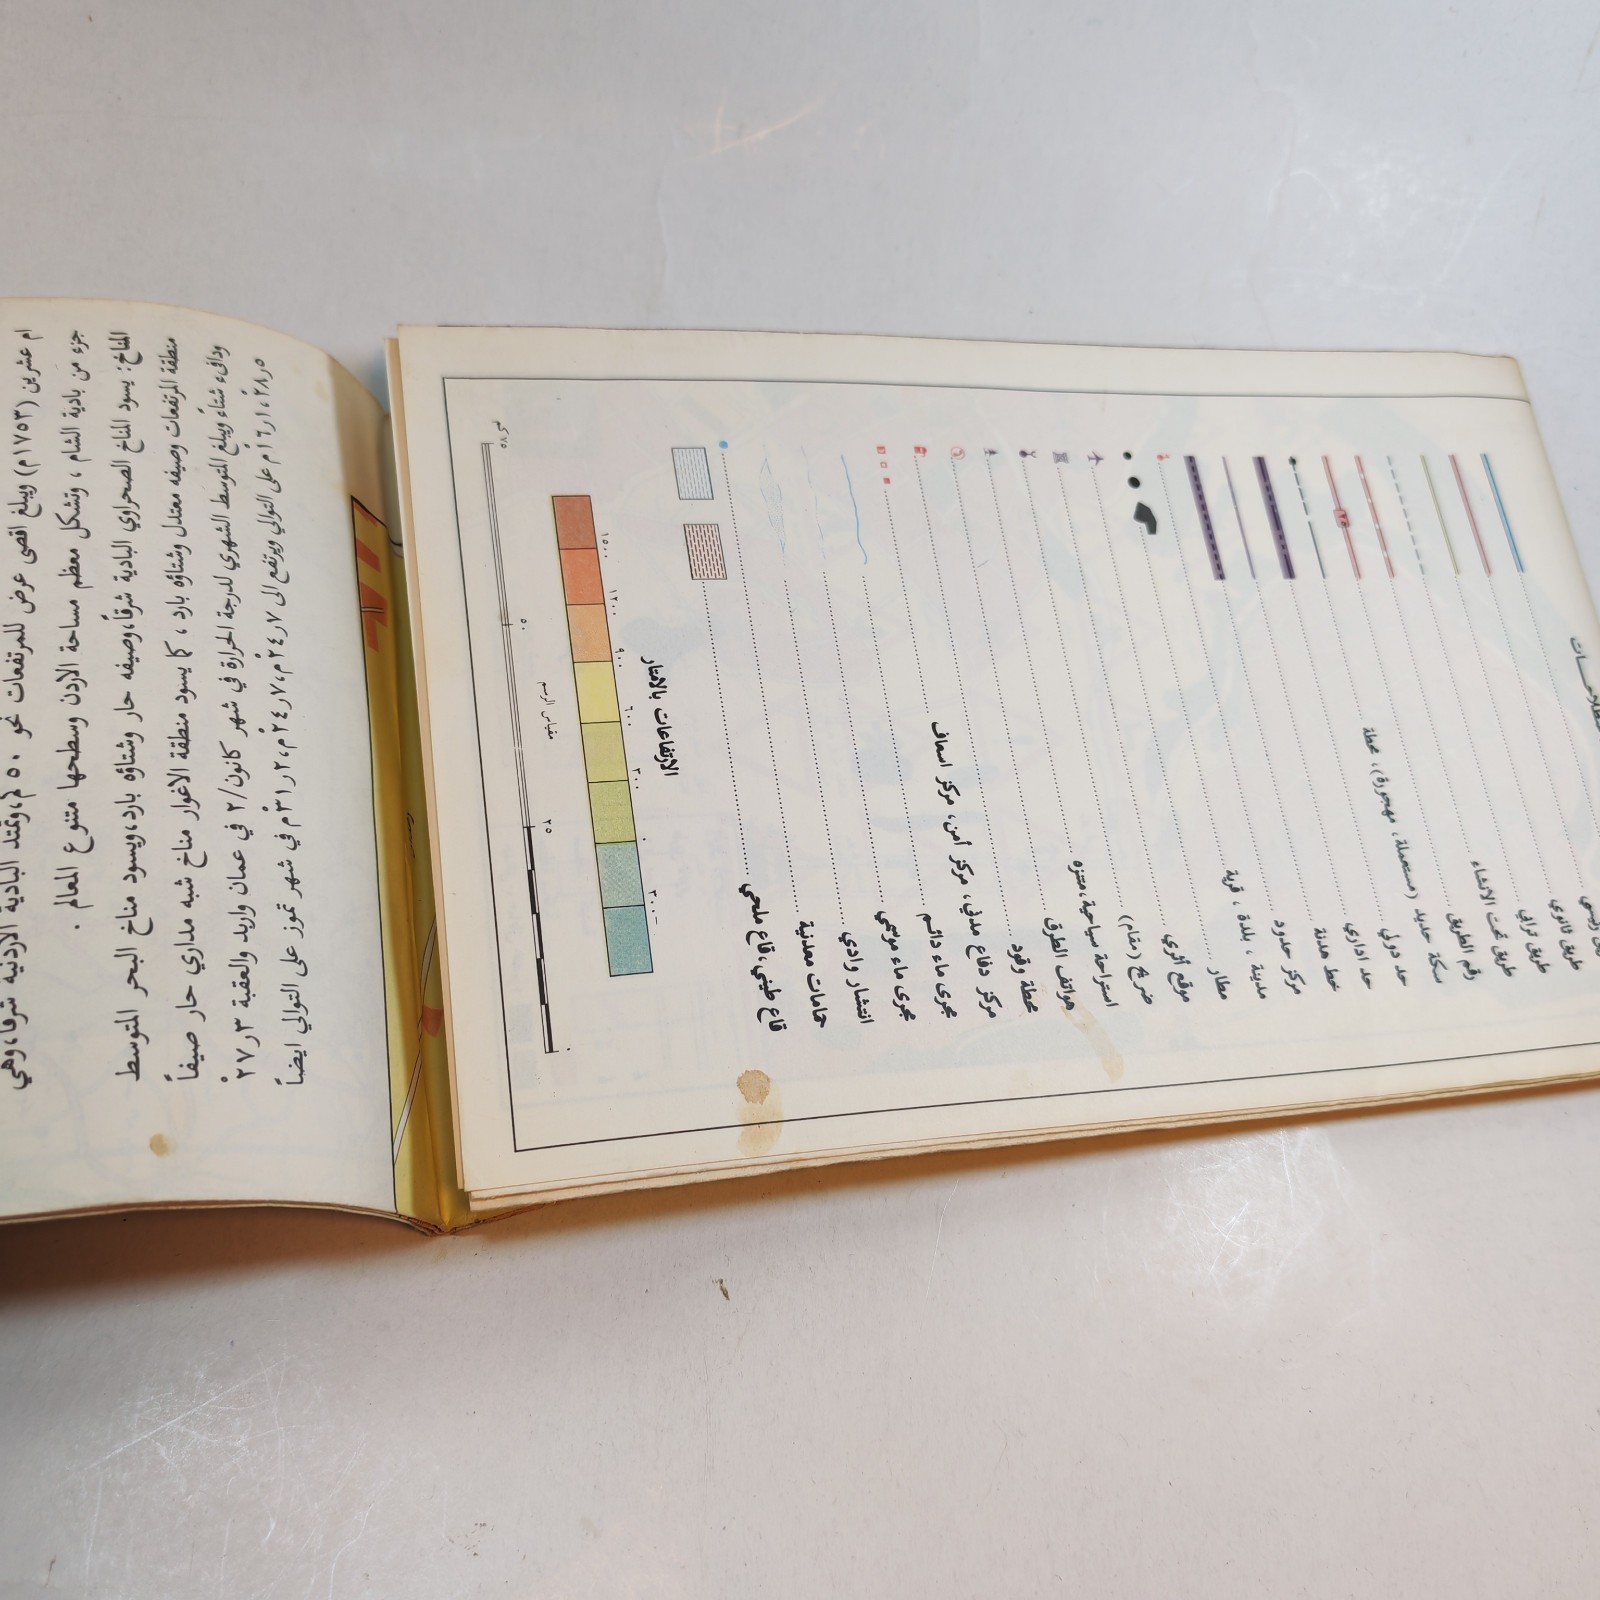 ام عشرين (١٧٥٣م) ويبلغ اقصى عرض للمرتفعات نحو ٥٠ كم، وتمتد البادية الاردنية شرقا، وهي
جزء من بادية الشام ، وتشكل معظم مساحة الاردن وسطحها متنوع المعالم .
المناخ: يسود المناخ الصحراوي البادية شرقاً، وصيفه حار وشتاؤه بارد، ويسود مناخ البحر المتوسط
منطقة المرتفعات وصيفه معتدل وشتاؤه بارد ، كما يسود منطقة الاغوار مناخ شبه مداري حار صيفاً
ودافىء شتاءً ويبلغ المتوسط الشهري للدرجة الحرارة في شهر كانون/٢ في عمان واربد والعقبة
على التوالي ويرتفع الى في شهر تموز على التوالي ايضاً
طريق ثانوي
طريق ترابي
طريق تحت الانشاء
رقم الطريق
سكة حديد (مستعملة، مهجورة)، محطة
حد دولي
حد اداري
خط هدنة
مركز حدود
مدينة ، بلدة ، قرية
مطار
موقع أثري
ضريح (مقام)
استراحة سياحية، متنزه
هواتف الطرق
محطة وقود
مركز دفاع مدني، مركز أمن، مركز اسعاف
مجرى ماء دائم
مجرى ماء موسمي
انتشار وادي
حمامات معدنية
قاع طيني، قاع ملحي
الارتفاعات بالامتار
١٥٠٠ ١٢٠٠ ٩٠٠ ٦٠٠ ٣٠٠ ٠ -٣٠٠
مقياس الرسم
٢٥ ٠